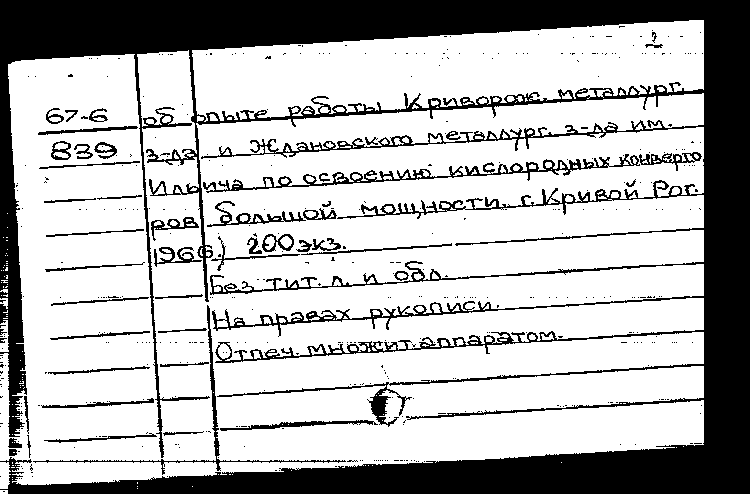 2
67-6 об опыте работы Криворож. металлург.
839 з-да и Ждановского металлург. з-да им.
Ильича по освоению кислородных конверто
ров большой мощности. г. Кривой Рог.
1966.) 200 экз.
Без тит. л. и обл.
На правах рукописи.
Отпеч. множит. аппаратом.